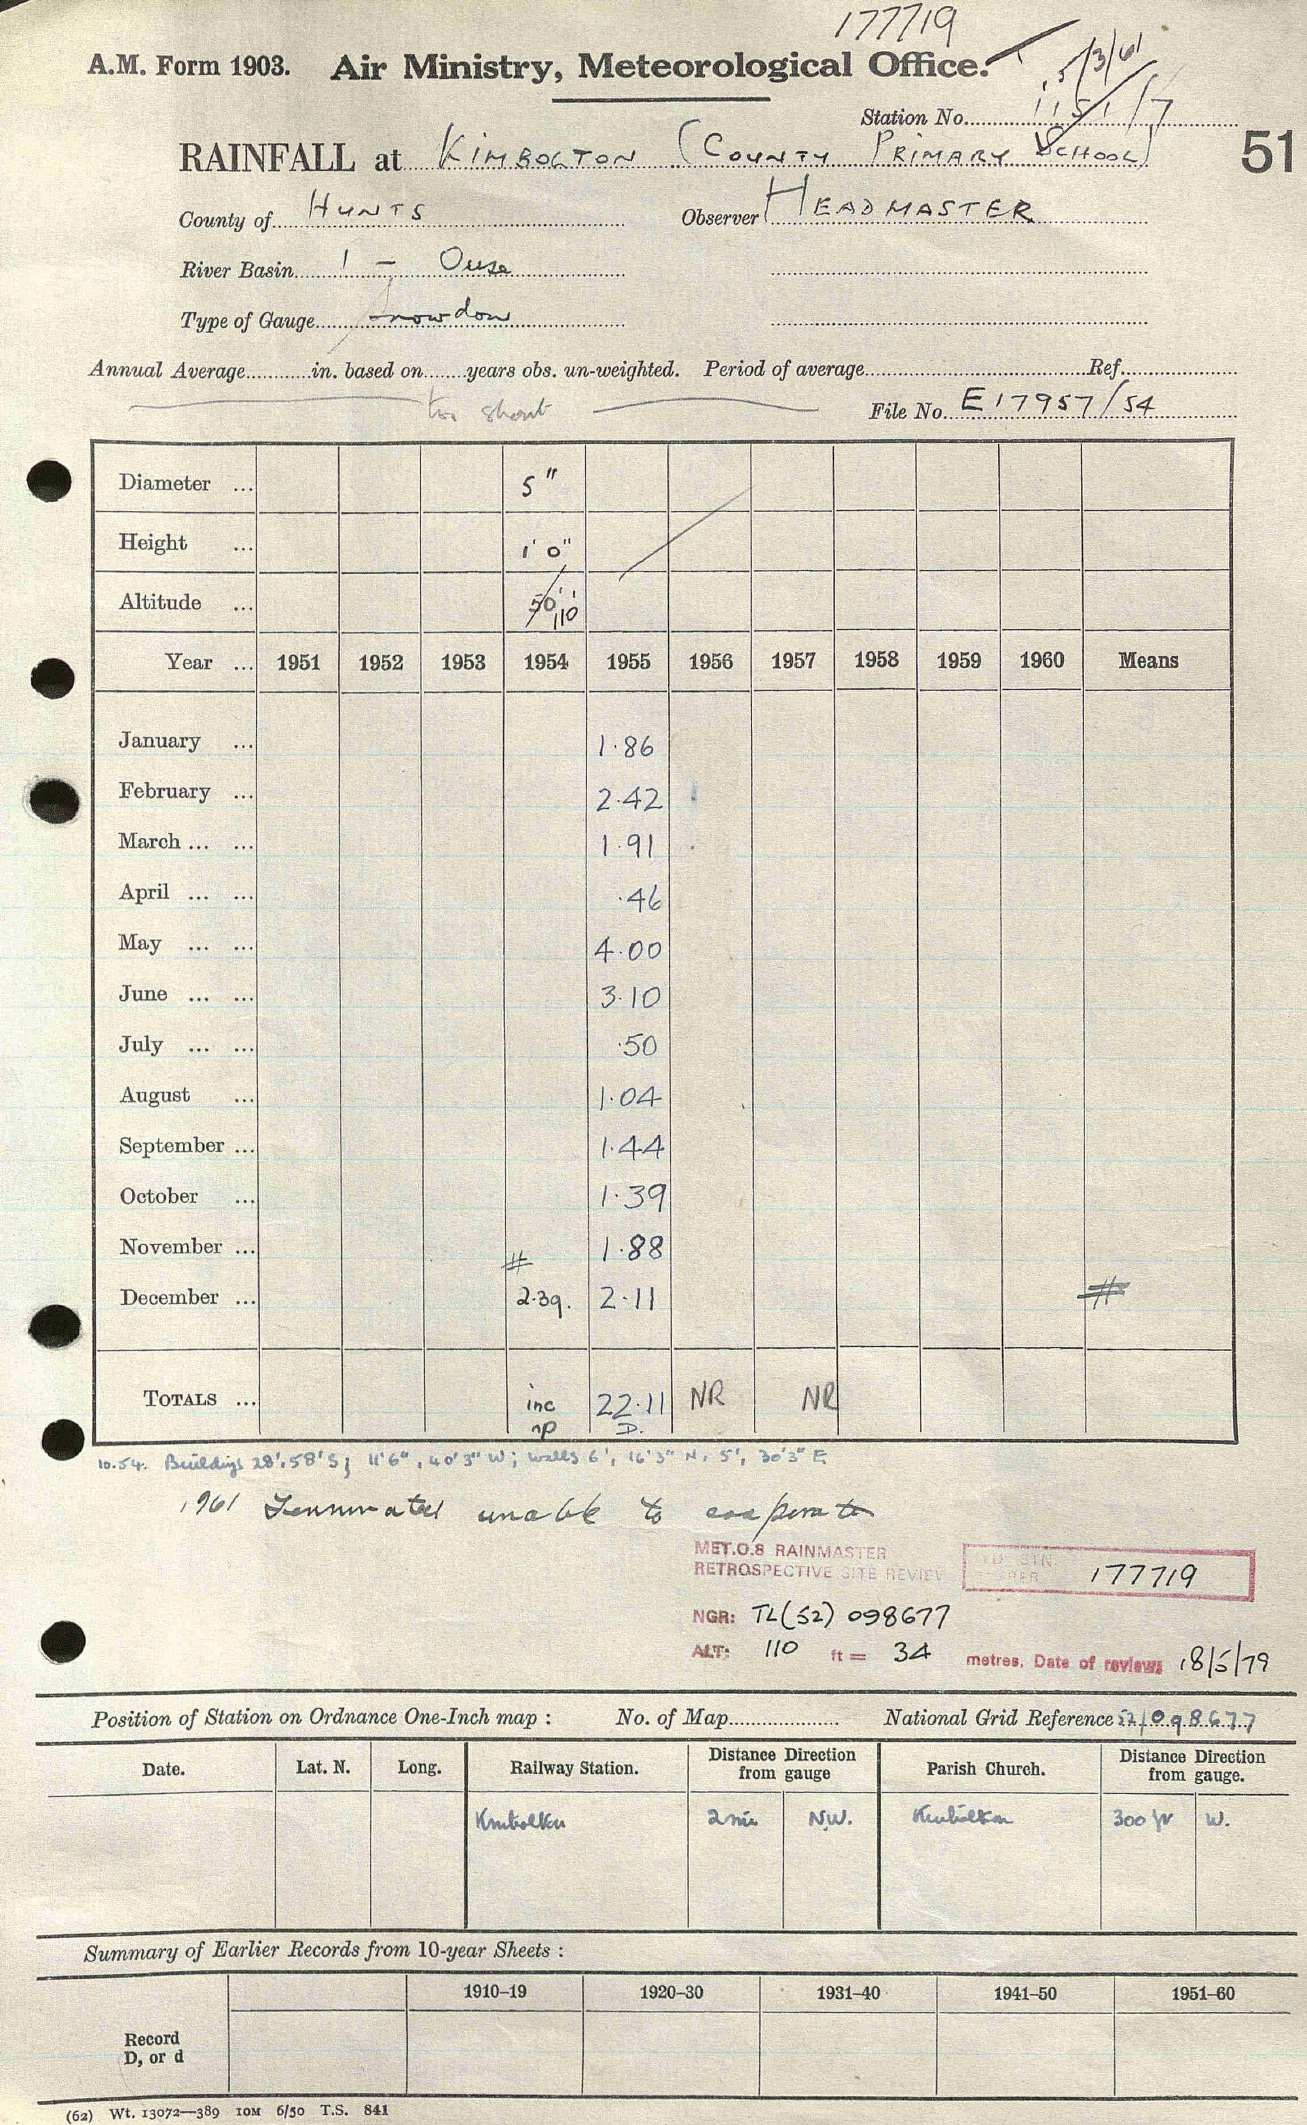 177719
A.M. Form 1903. Air Ministry, Meteorological Office.
Station No. 151/7
RAINFALL at KIMBOLTON (COUNTY PRIMARY SCHOOL) 51
County of HUNTS Observer HEADMASTER
River Basin 1 - Ouse
Type of Gauge Snowdon
Annual Average in. based on years obs. un-weighted. Period of average Ref.
too short
File No. E17957/54
Diameter ... 5"
Height ... 1' 0"
Altitude ... 50' 110'
Year ... 1951 1952 1953 1954 1955 1956 1957 1958 1959 1960 Means
January ... 1.86
February ... 2.42
March ... ... 1.91
April ... ... .46
May ... ... 4.00
June ... ... 3.10
July ... ... .50
August ... 1.04
September ... 1.44
October ... 1.39
November ... 1.88
December ... 2.39. 2.11
TOTALS ... inc np 22.11 D. NR NR
10.54. Buildings 28', 58' S; 11'6", 40'3" W; walls 6', 16'3" N, 5', 30'3" E
1961 Terminated unable to cooperate
MET.O.8 RAINMASTER
RETROSPECTIVE SITE REVIEW
177719
NGR: TL(52) 098677
ALT: 110 ft = 34 metres. Date of reviews 18/5/79
Position of Station on Ordnance One-Inch map : No. of Map National Grid Reference 52/098677
Date. Lat. N. Long. Railway Station. Distance Direction from gauge Parish Church. Distance Direction from gauge.
Kimbolton 2 mi N.W. Kimbolton 300 yr W.
Summary of Earlier Records from 10-year Sheets :
1910–19 1920–30 1931–40 1941–50 1951–60
Record
D, or d
(62) Wt. 13072—389 10M 6/50 T.S. 841